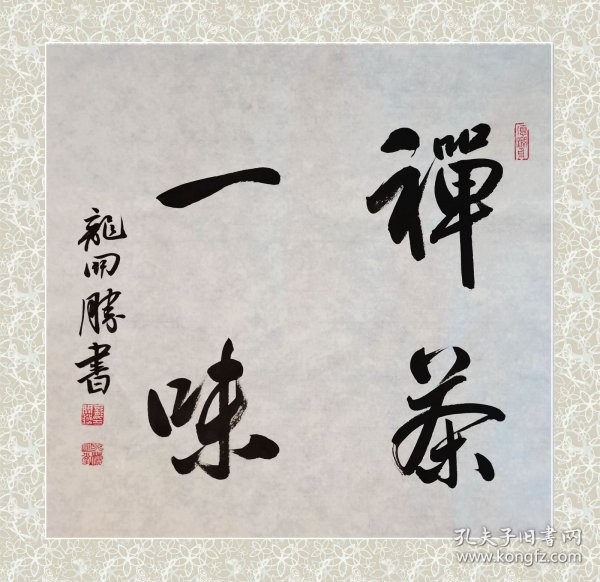 禪茶
一味
龍開勝書
孔夫子旧书网
www.kongfz.com